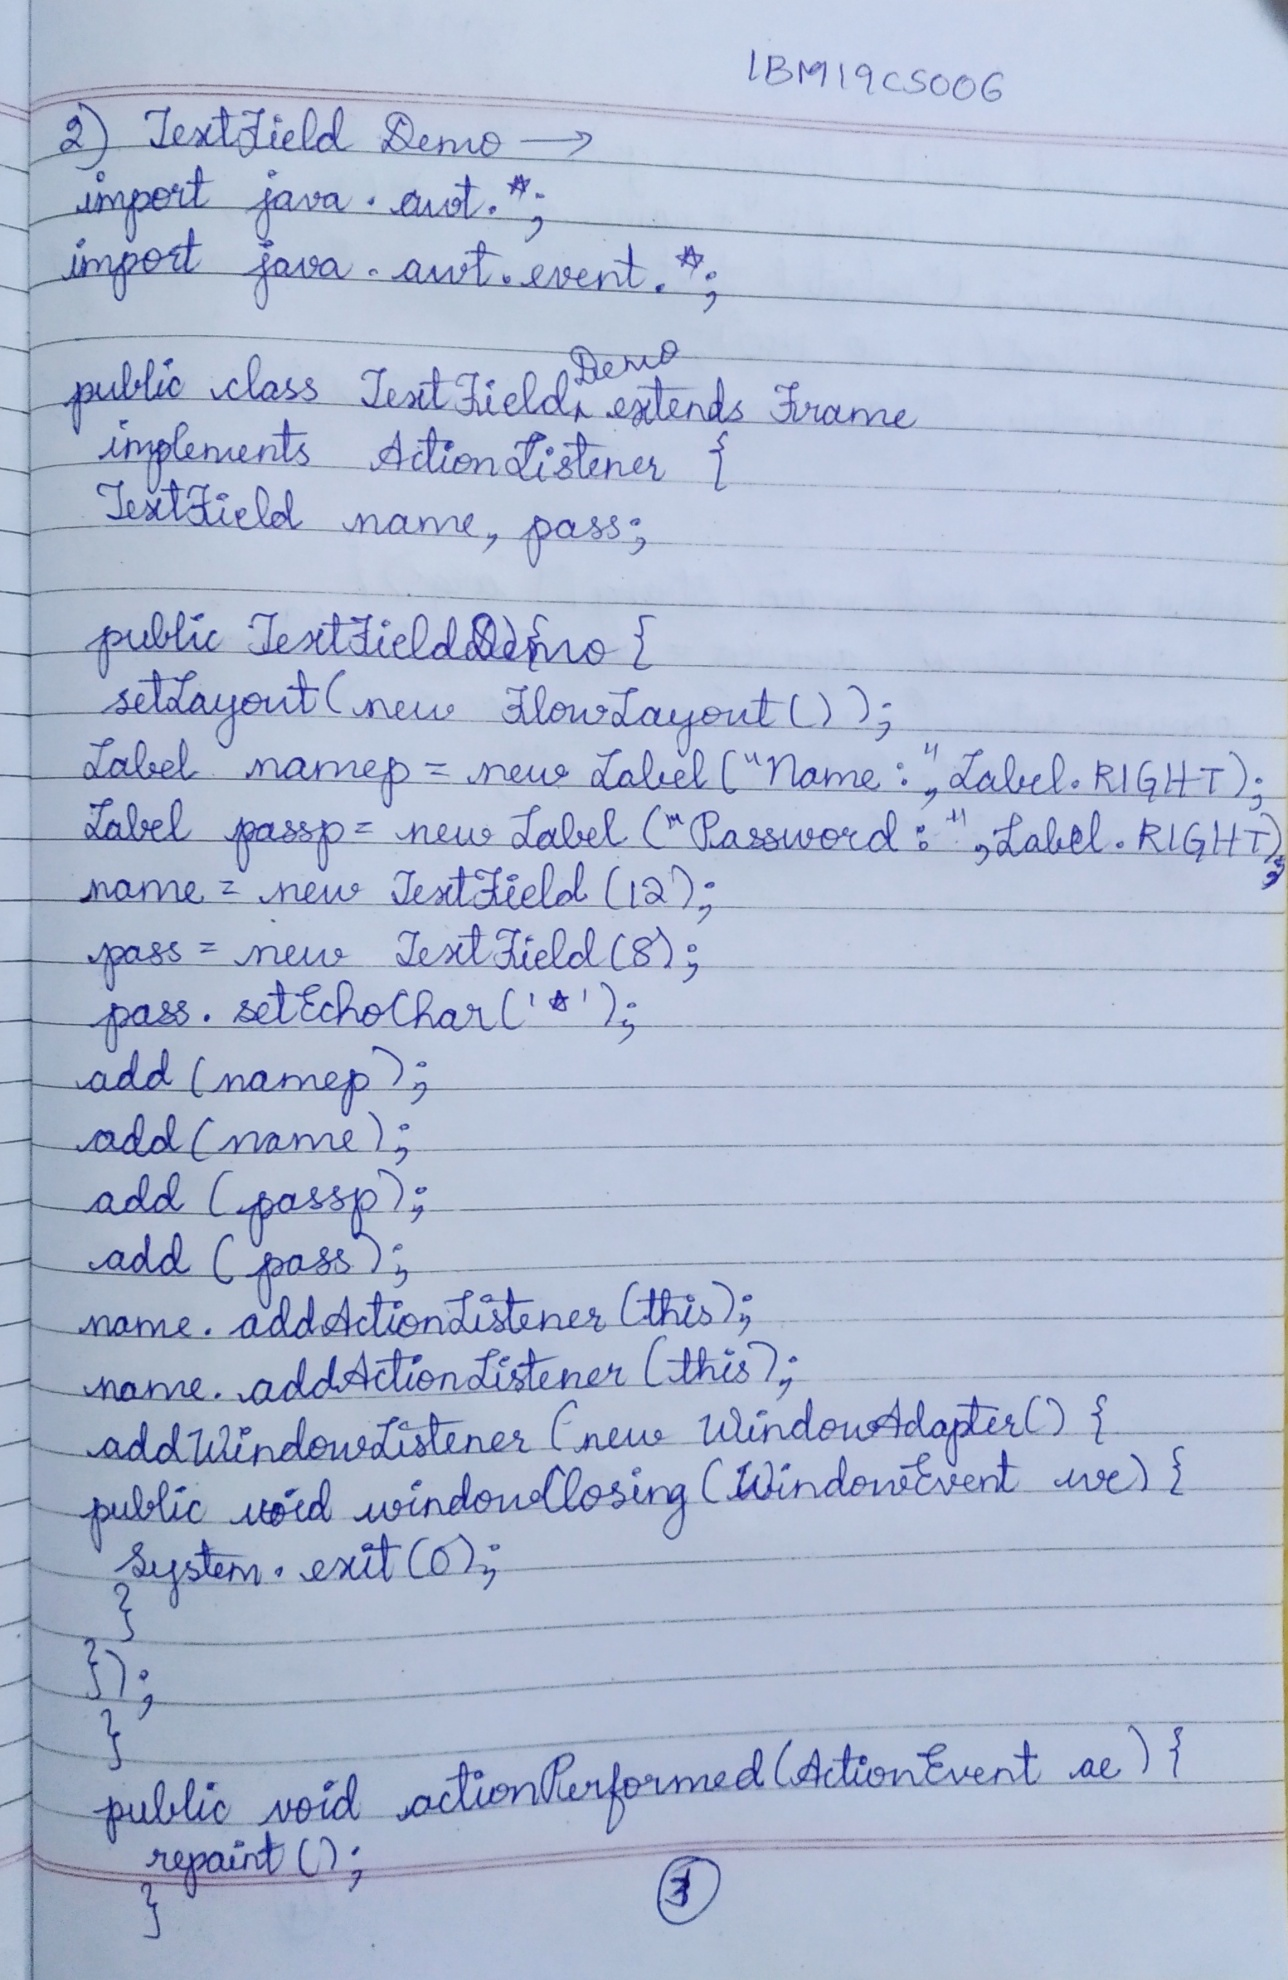 1BM19CS006
2) TextField Demo →
import java.awt.*;
import java.awt.event.*;
public class TextFieldDemo extends Frame
implements ActionListener {
TextField name, pass;
public TextFieldDemo {
setLayout(new FlowLayout());
Label namep = new Label("Name:", Label.RIGHT);
Label passp = new Label("Password:", Label.RIGHT);
name = new TextField(12);
pass = new TextField(8);
pass.setEchoChar('*');
add(namep);
add(name);
add(passp);
add(pass);
name.addActionListener(this);
name.addActionListener(this);
addWindowListener(new WindowAdapter() {
public void windowClosing(WindowEvent we) {
System.exit(0);
}
});
}
public void actionPerformed(ActionEvent ae) {
repaint();
}